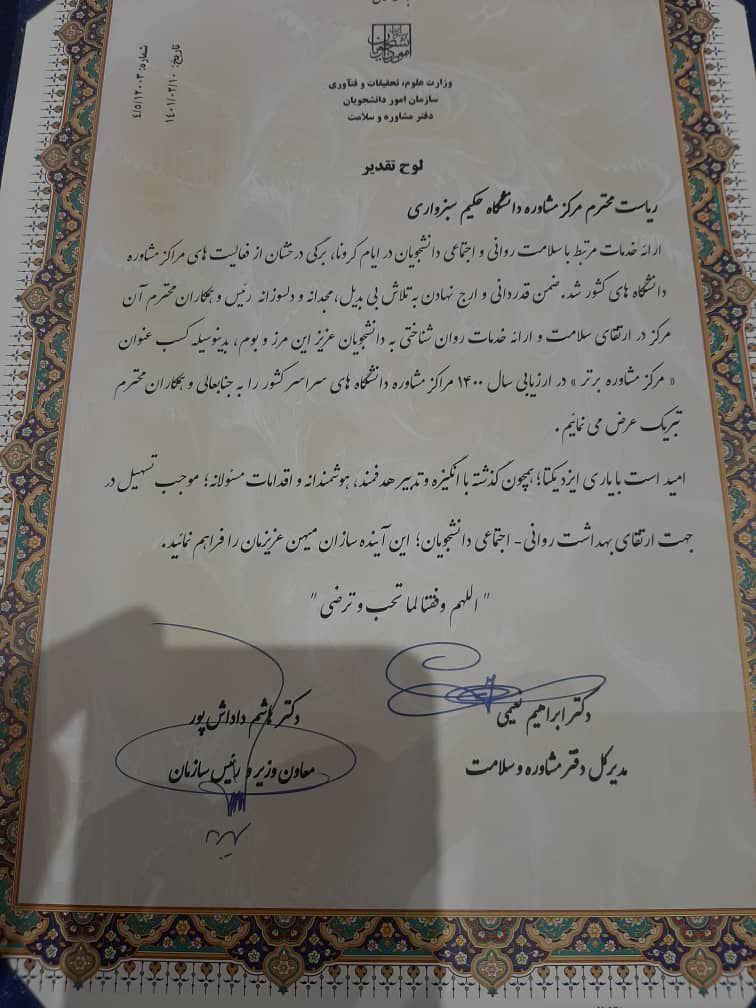 تاریخ: ۱۴۰۱/۰۲/۱۰
شماره: ۴/۵/۱۲۰۰۳
سازمان امور دانشجویان
وزارت علوم، تحقیقات و فنّآوری
سازمان امور دانشجویان
دفتر مشاوره و سلامت
لوح تقدیر
ریاست محترم مرکز مشاوره دانشگاه حکیم سبزواری
ارائه خدمات مرتبط با سلامت روانی و اجتماعی دانشجویان در ایام کرونا، برگی درخشان از فعالیت های مراکز مشاوره
دانشگاه های کشور شد. ضمن قدردانی و ارج نهادن به تلاش بی بدیل، مجدانه و دلسوزانه رئیس و همکاران محترم آن
مرکز در ارتقای سلامت و ارائه خدمات روان شناختی به دانشجویان عزیز این مرز و بوم، بدینوسیله کسب عنوان
« مرکز مشاوره برتر » در ارزیابی سال ۱۴۰۰ مراکز مشاوره دانشگاه های سراسر کشور را به جنابعالی و همکاران محترم
تبریک عرض می نمائیم .
امید است با یاری ایزد یکتا؛ همچون گذشته با انگیزه و تدبیر هدفمند، هوشمندانه و اقدامات مسئولانه؛ موجب تسهیل در
جهت ارتقای بهداشت روانی - اجتماعی دانشجویان؛ این آینده سازان میهن عزیزمان را فراهم نمائید.
" اللهم وفقنا لما تحب و ترضی "
دکتر ابراهیم نعیمی
مدیر کل دفتر مشاوره و سلامت
دکتر هاشم داداش پور
معاون وزیر و رئیس سازمان